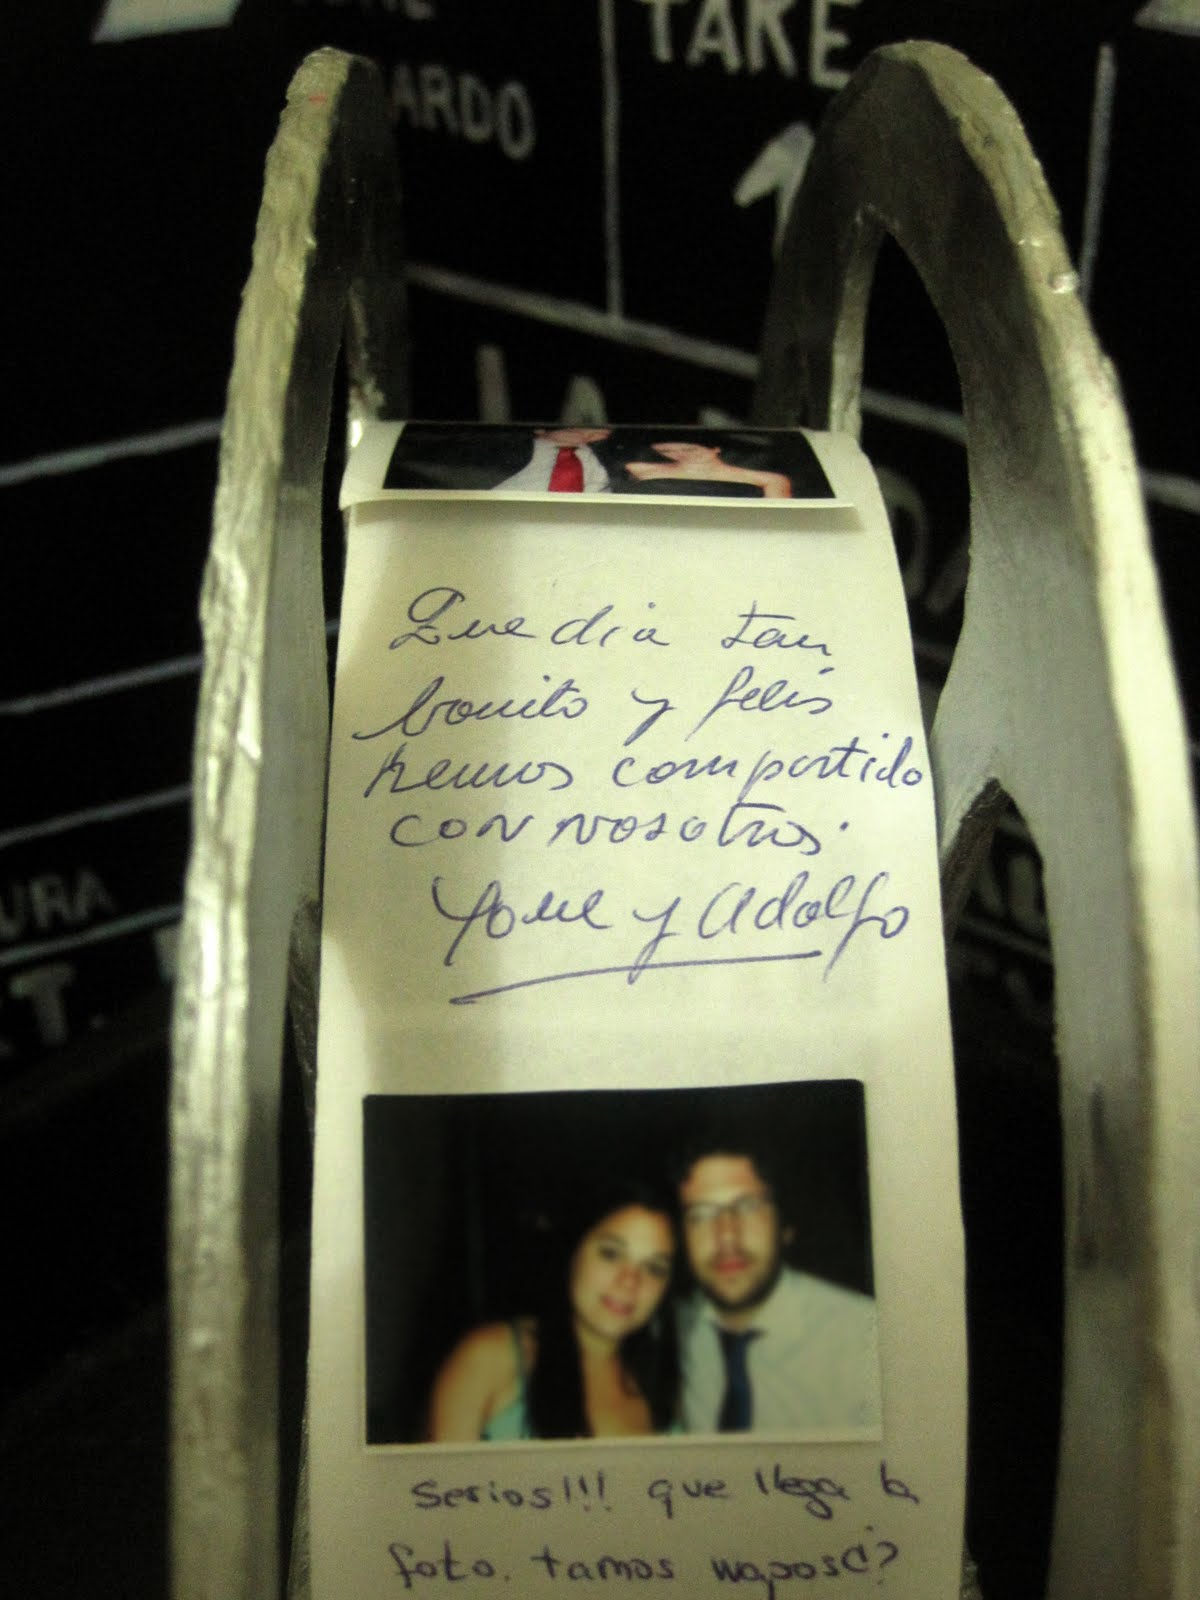 ARDO
TAKE
1
Que dia tan
bonito y felis
hemos compartido
con nosotros.
y Adolfo
Serios!!! que llega la
foto. tamos wapos¿?
URA